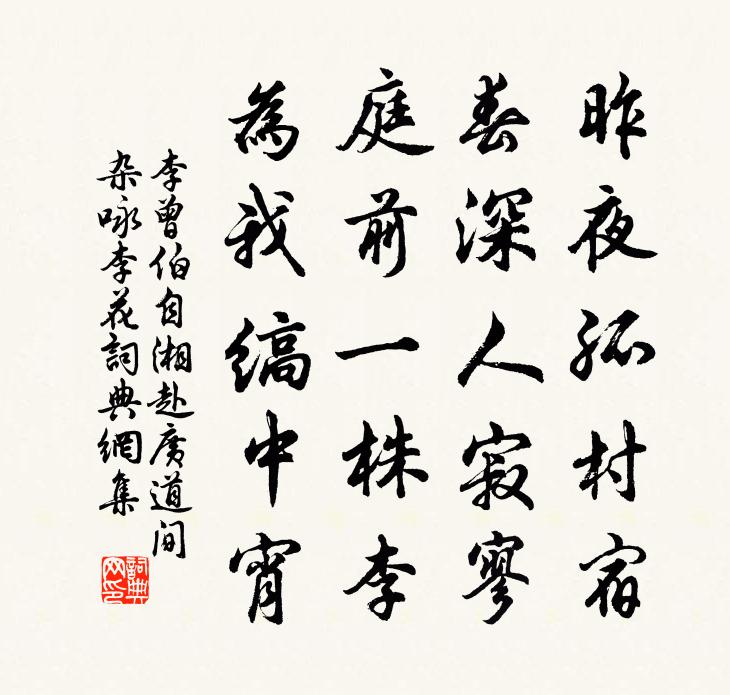 昨夜孤村宿
春深人寂寥
庭前一株李
為我縞中宵
李曾伯自湘赴廣道间
杂咏李花詞典網集
詞典网印